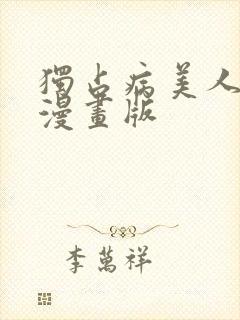 獨占病美人
漫畫版
李萬祥